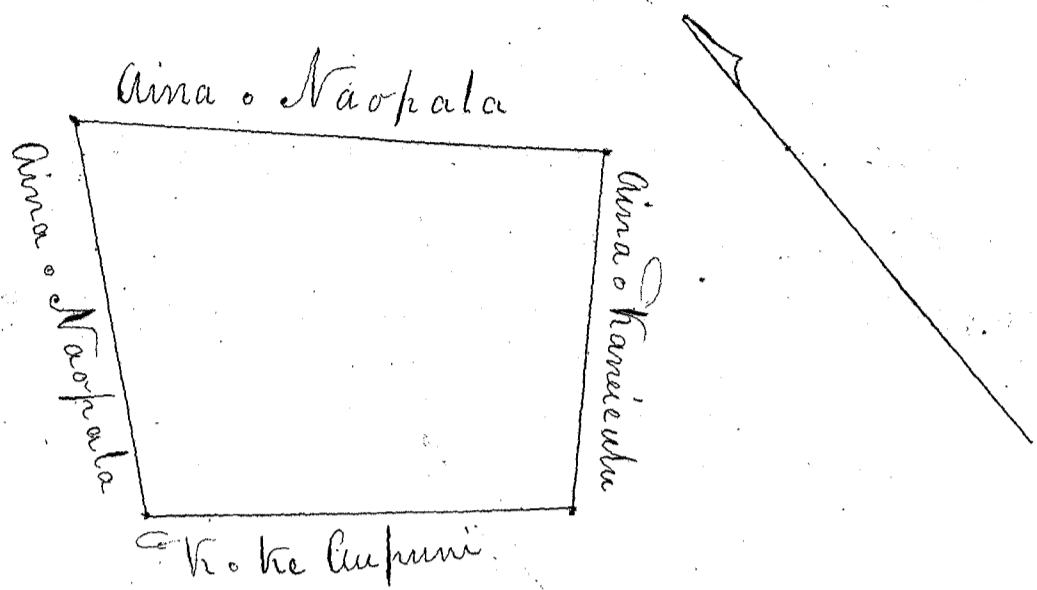 Aina o Naopala
Aina o Naopala
Aina o
Ko ke Aupuni